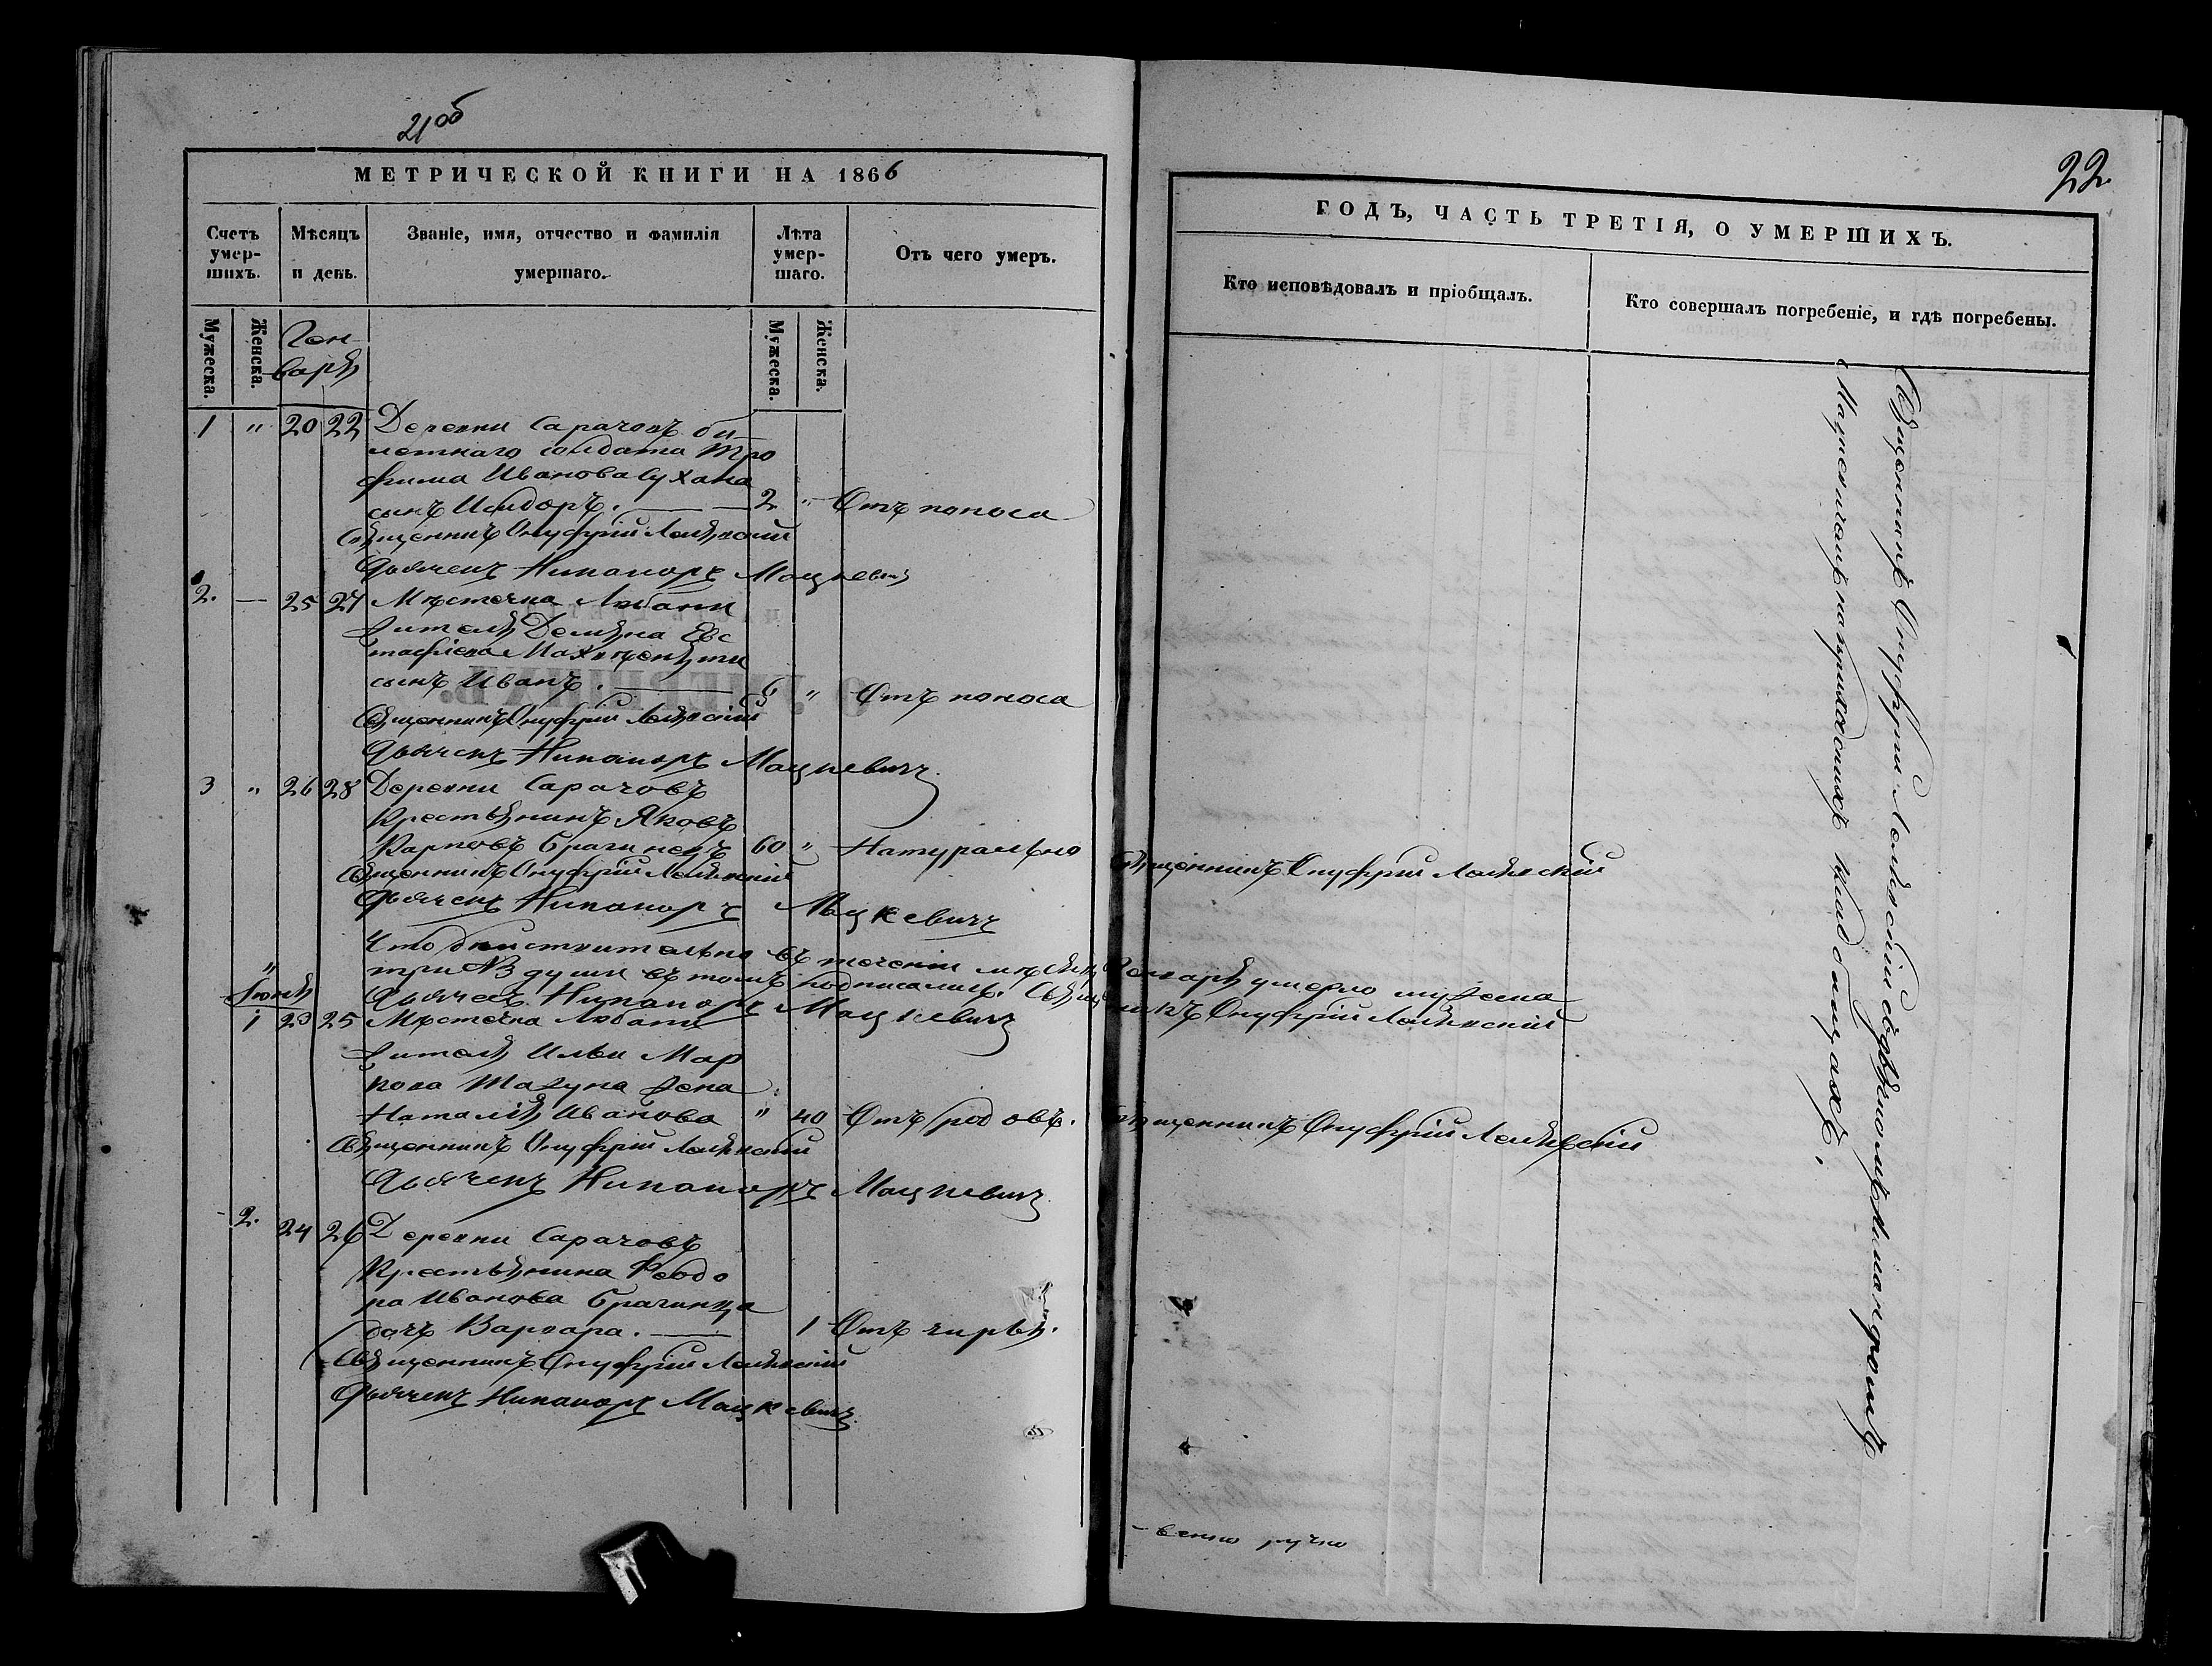 21об
МЕТРИЧЕСКОЙ КНИГИ НА 1866
Счетъ умер-шихъ.
Мѣсяцъ и день.
Званіе, имя, отчество и фамилія умершаго.
Лѣта умер-шаго.
Отъ чего умеръ.
Мужеска.
Женска.
Ген-
варя
Мужеска.
Женска.
1 " 20 22 Деревни Сарачовъ би
летнаго солдата Тро
фима Иванова Сухана
сынъ Исидоръ. 2 " Отъ поноса
Священникъ Онуфрій
Дьячекъ Никаноръ Мацкевичъ
2. — 25 27 Мѣстечка Любани
жителя Демьяна Евс
тафіева
сынъ Иванъ. " Отъ поноса
Священникъ Онуфрій
Дьячекъ Никаноръ Мацкевичъ
3 " 26 28 Деревни Сарачовъ
Крестьянинъ Яковъ
Карповъ Брагинецъ 60 " Натурально
Священникъ Онуфрій
Дьячекъ Никаноръ Мацкевичъ
Что дѣйствительно въ теченіи мѣсяца Генваря умерло мужеска
три №3 души въ томъ подписались. Священникъ Онуфрій
Дьячекъ Никаноръ Мацкевичъ
"
Іюня
1 23 25 Мѣстечка Любани
жителя Ильи Мар
кова жена
Наталія Иванова " 40 Отъ родовъ.
Священникъ Онуфрій
Дьячекъ Никаноръ Мацкевичъ
2. 24 26 Деревни Сарачовъ
Крестьянина Феодо
ра Иванова Брагинца
дочь Варвара. 1 Отъ чирья.
Священникъ Онуфрій
Дьячекъ Никаноръ Мацкевичъ
22
ГОДЪ, ЧАСТЬ ТРЕТІЯ, О УМЕРШИХЪ.
Кто исповѣдовалъ и пріобщалъ.
Кто совершалъ погребеніе, и гдѣ погребены.
Священникъ Онуфрій
Священникъ Онуфрій
Священникъ Онуфрій съ дьячкомъ Никаноромъ
Мацкевичемъ на приходскихъ кладбищахъ.
-венно ручно